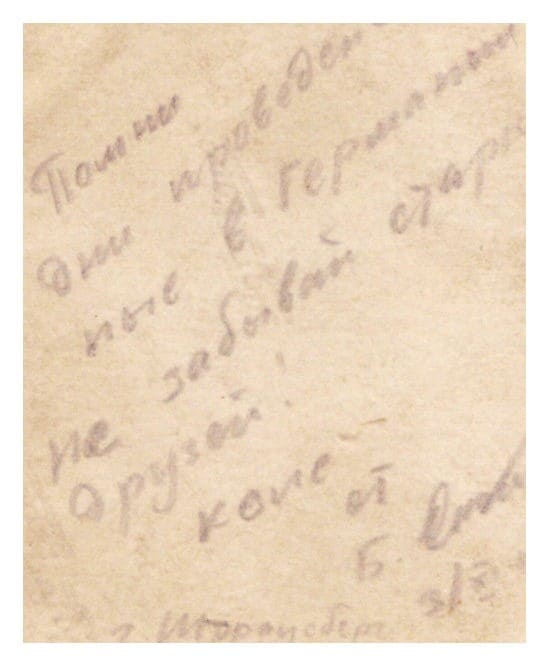 Помни
дни проведен
ные в германии
не забывай стары
друзей!
коле от
Б.
г.